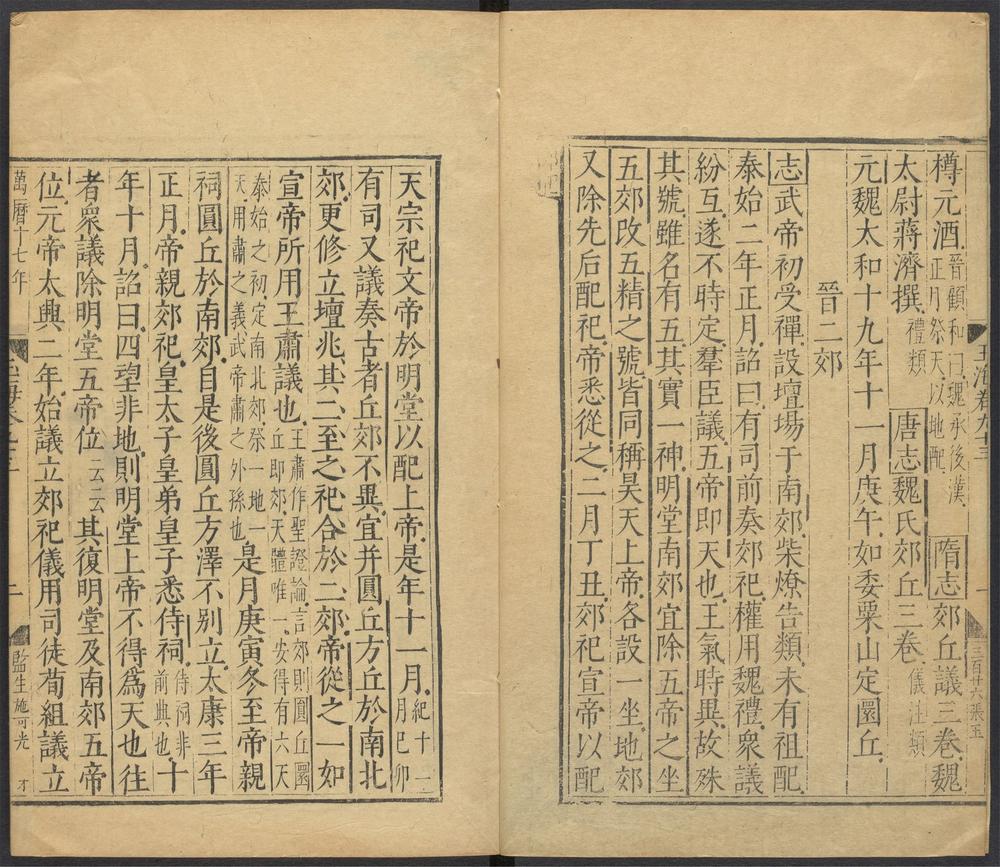 樽元酒晉顧和曰魏承後漢正月祭天以地配隋志郊丘議三卷魏
太尉蔣濟撰禮類唐志魏氏郊丘三卷儀注類
元魏太和十九年十一月庚午如委粟山定圜丘
晉二郊
志武帝初受禪設壇場于南郊柴燎告類未有祖配
泰始二年正月詔曰有司前奏郊祀權用魏禮衆議
紛互遂不時定羣臣議五帝即天也王氣時異故殊
其號雖名有五其實一神明堂南郊宜除五帝之坐
五郊改五精之號皆同稱昊天上帝各設一坐地郊
又除先后配祀帝悉從之二月丁丑郊祀宣帝以配
天宗祀文帝於明堂以配上帝是年十一月紀十一月己卯
有司又議奏古者丘郊不異宜并圓丘方丘於南北
郊更修立壇兆其二至之祀合於二郊帝從之一如
宣帝所用王肅議也王肅作聖證論言郊則圓丘圜丘即郊天體唯一安得有六天
泰始之初定南北郊祭一地一天用肅之義武帝肅之外孫也是月庚寅冬至帝親
祠圓丘於南郊自是後圓丘方澤不别立太康三年
正月帝親郊祀皇太子皇弟皇子悉侍祠侍祠非前典也十
年十月詔曰四望非地則明堂上帝不得爲天也往
者衆議除明堂五帝位云云其復明堂及南郊五帝
位元帝太興二年始議立郊祀儀用司徒荀組議立
玉海卷九十三
一
三百廿六張玉
萬曆十七年
二
監生施可光